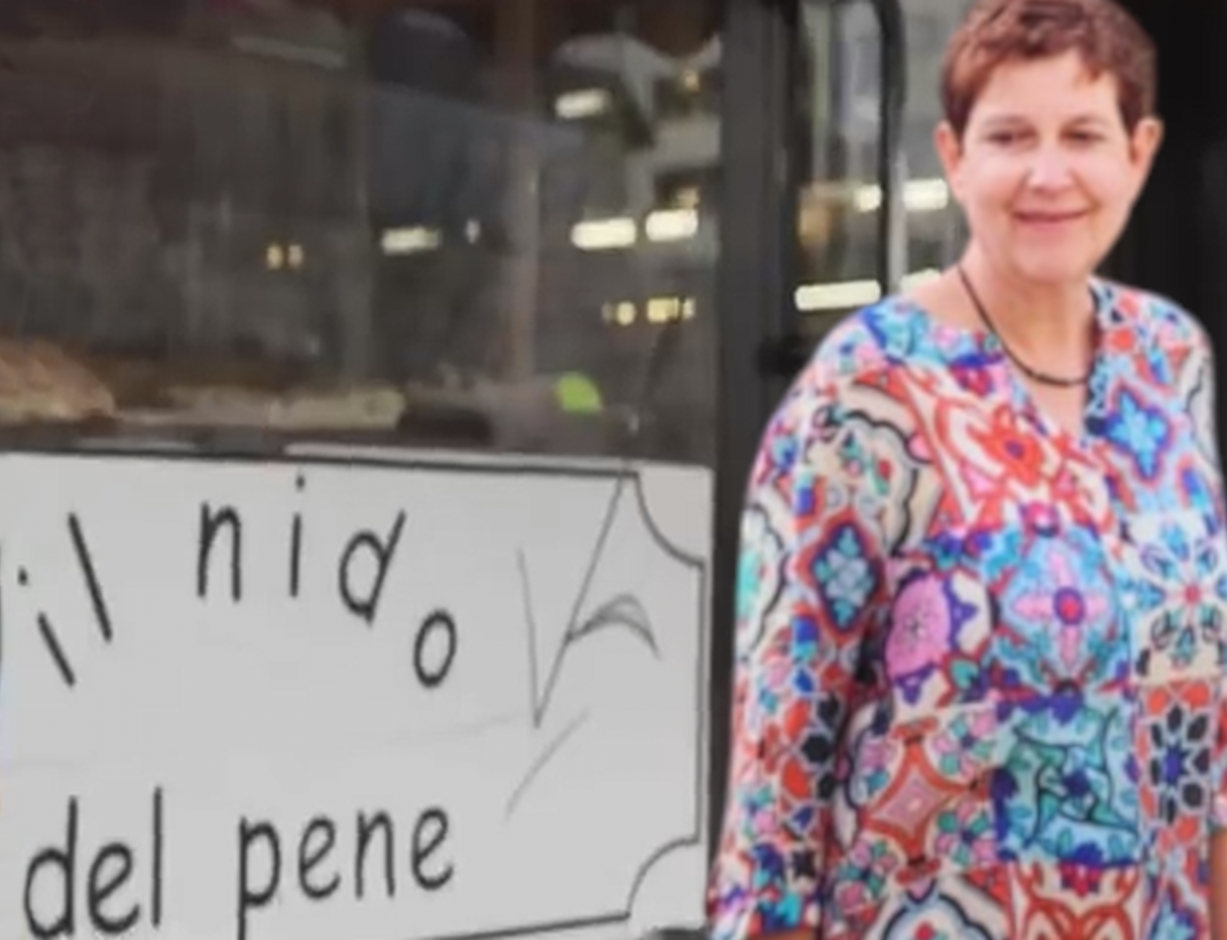 il nido
del pene